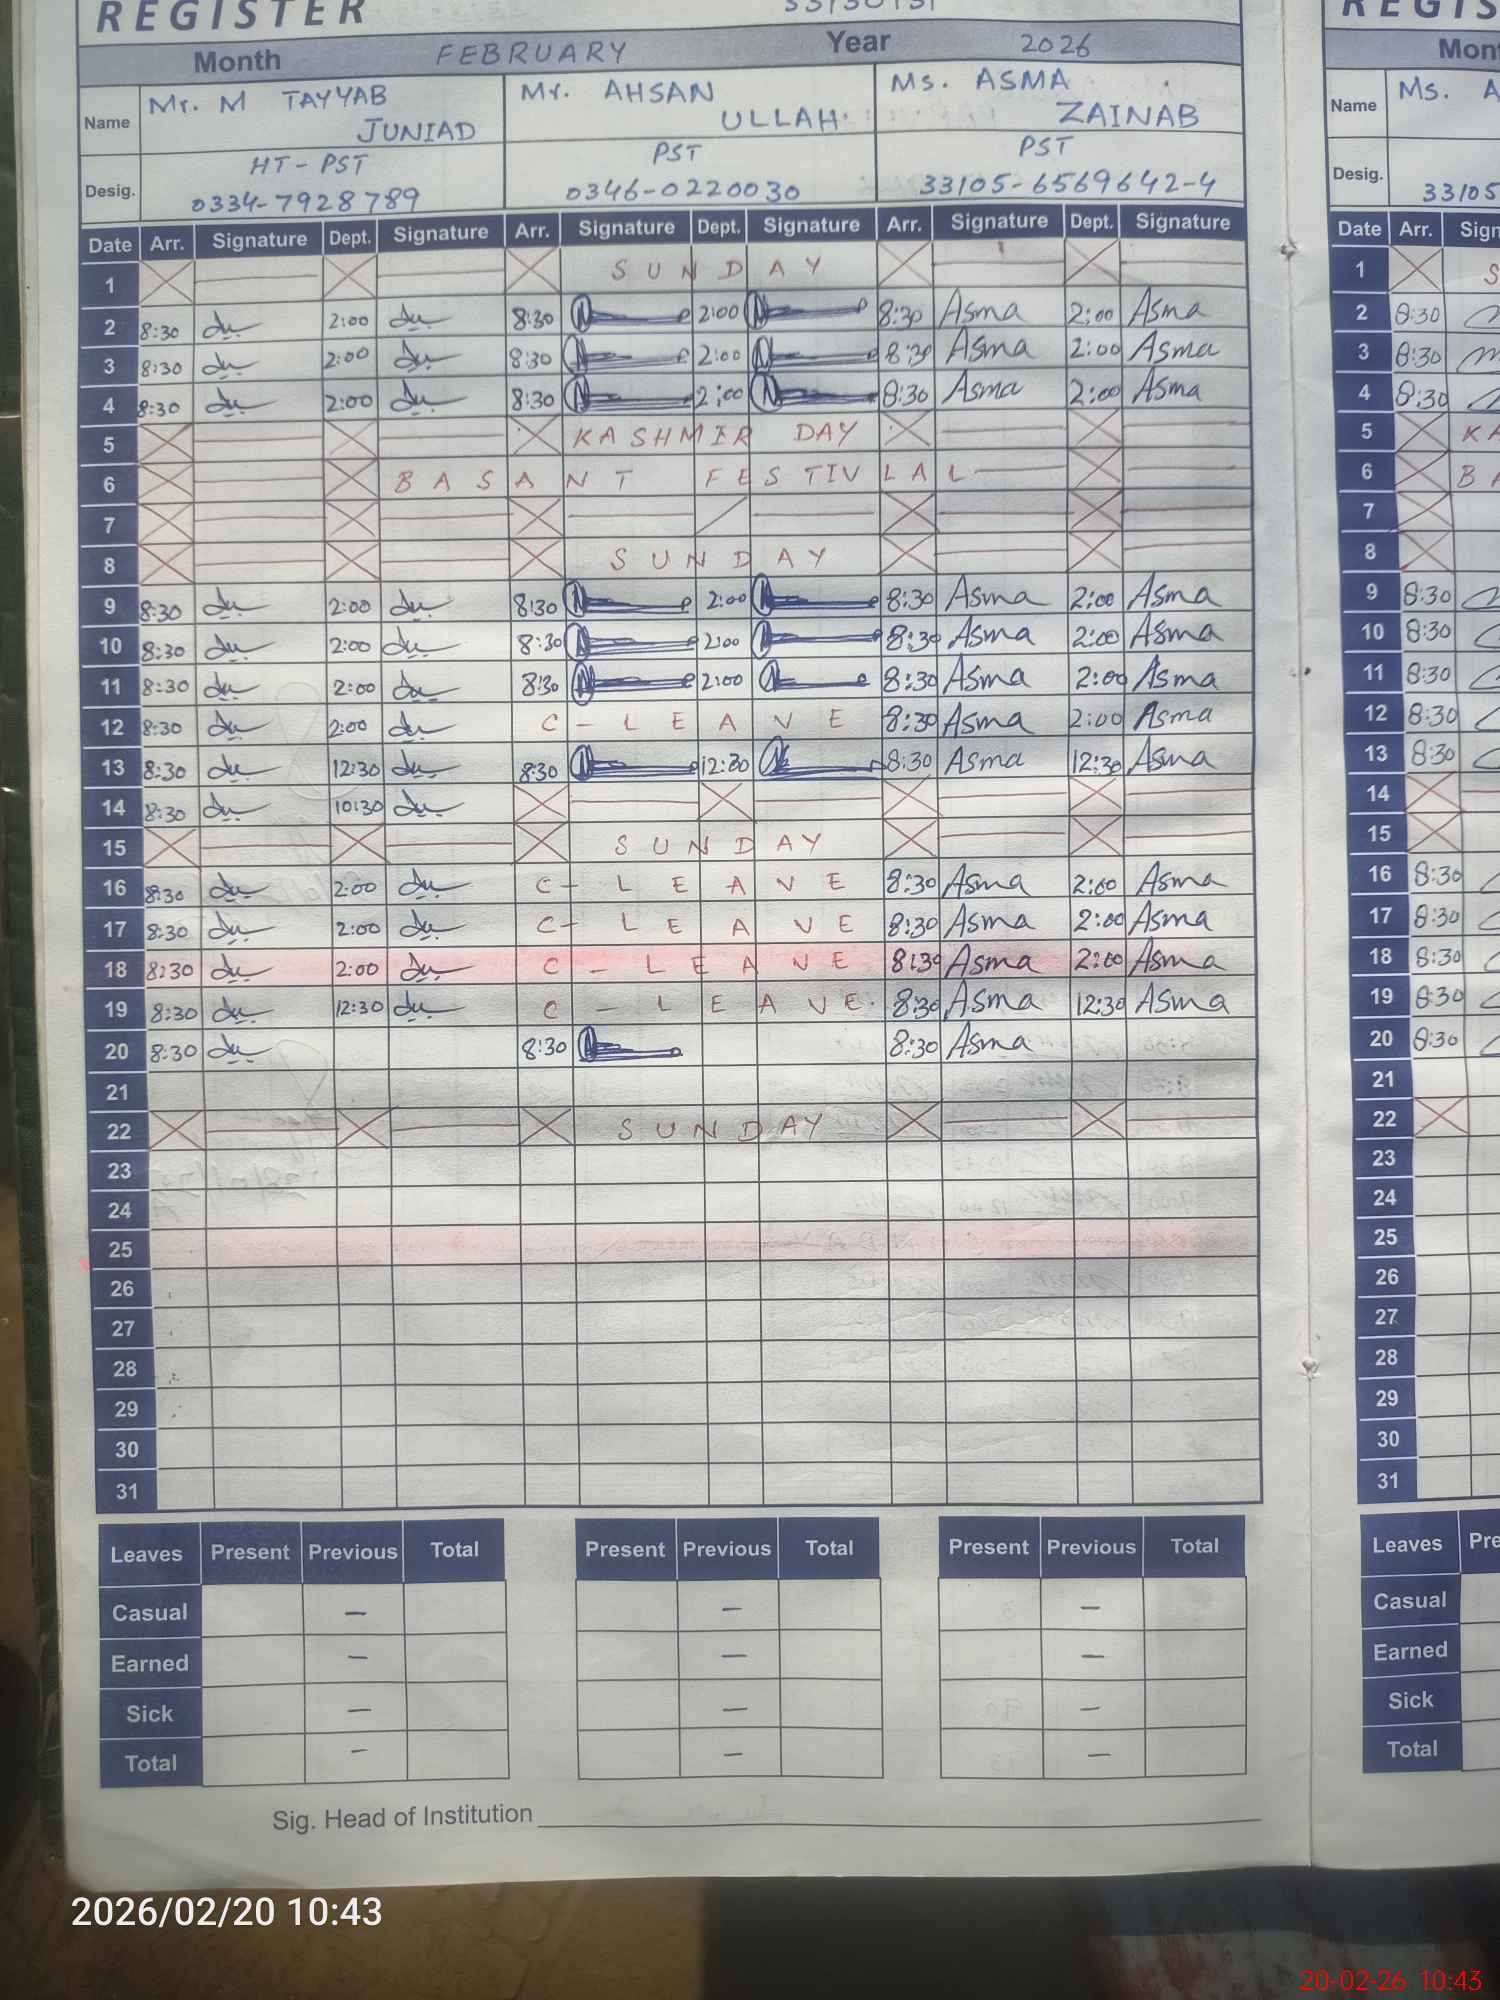 REGISTER
Month FEBRUARY Year 2026
Name Mr. M TAYYAB JUNIAD Mr. AHSAN ULLAH Ms. ASMA ZAINAB
Desig. HT-PST 0334-7928789 PST 0346-0220030 PST 33105-6569642-4
Date Arr. Signature Dept. Signature Arr. Signature Dept. Signature Arr. Signature Dept. Signature
1 SUNDAY
2 8:30 2:00 8:30 2:00 8:30 Asma 2:00 Asma
3 8:30 2:00 8:30 2:00 8:30 Asma 2:00 Asma
4 8:30 2:00 8:30 2:00 8:30 Asma 2:00 Asma
5 KASHMIR DAY
6 BASANT FESTIVLAL
7
8 SUNDAY
9 8:30 2:00 8:30 2:00 8:30 Asma 2:00 Asma
10 8:30 2:00 8:30 2:00 8:30 Asma 2:00 Asma
11 8:30 2:00 8:30 2:00 8:30 Asma 2:00 Asma
12 8:30 2:00 C-LEAVE 8:30 Asma 2:00 Asma
13 8:30 12:30 8:30 12:30 8:30 Asma 12:30 Asma
14 8:30 10:30
15 SUNDAY
16 8:30 2:00 C-LEAVE 8:30 Asma 2:00 Asma
17 8:30 2:00 C-LEAVE 8:30 Asma 2:00 Asma
18 8:30 2:00 C-LEAVE 8:30 Asma 2:00 Asma
19 8:30 12:30 C-LEAVE. 8:30 Asma 12:30 Asma
20 8:30 8:30 8:30 Asma
21
22 SUNDAY
23
24
25
26
27
28
29
30
31
Leaves Present Previous Total Present Previous Total Present Previous Total
Casual – – –
Earned – – –
Sick – – –
Total – – –
Sig. Head of Institution
Name Ms.
Desig. 33105
Date Arr.
1
2 8:30
3 8:30
4 8:30
5
6
7
8
9 8:30
10 8:30
11 8:30
12 8:30
13 8:30
14
15
16 8:30
17 8:30
18 8:30
19 8:30
20 8:30
21
22
23
24
25
26
27
28
29
30
31
Leaves
Casual
Earned
Sick
Total
2026/02/20 10:43
20-02-26 10:43